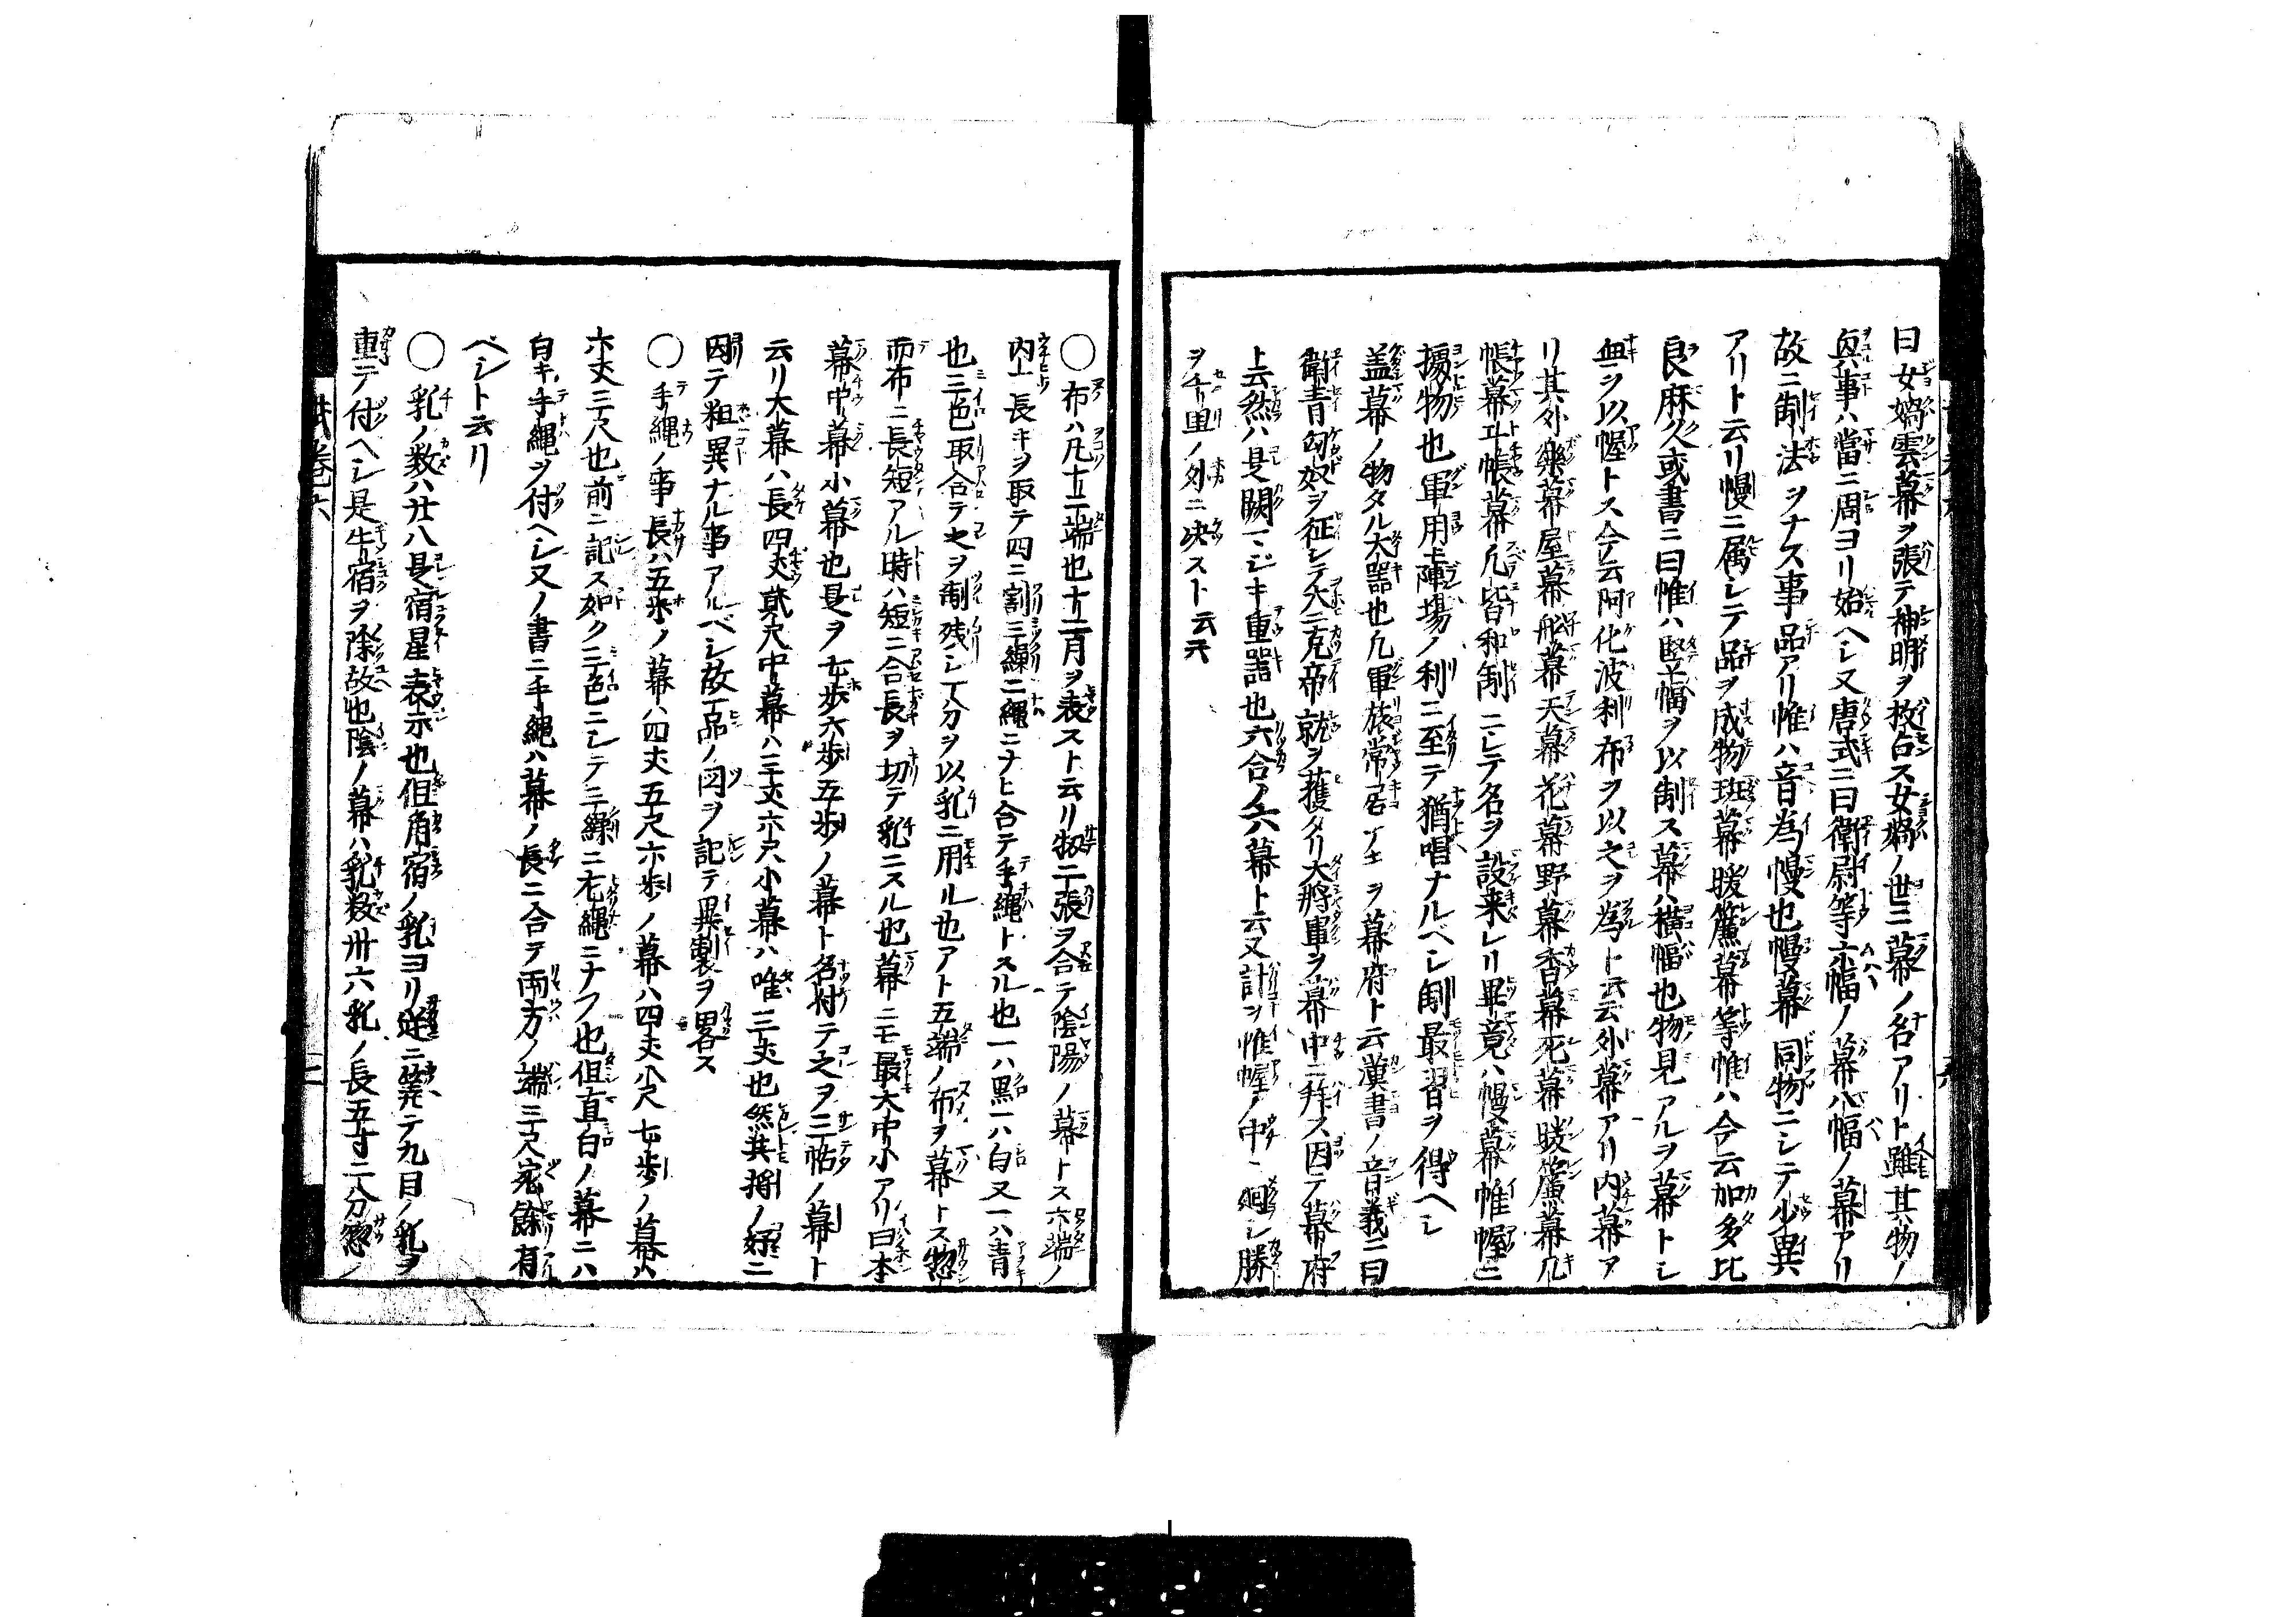 曰女媧雲幕ヲ張テ神明ヲ枚占ス女媧ノ世ニ幕ノ名アリト雖其物ノ
興事ハ當ニ周ヨリ始ヘシ又唐式ニ曰衛尉等六幅ノ幕八幅ノ幕アリ
故ニ制法ヲナス事品アリ帷ハ音為幔也幔幕同物ニシテ少異
アリト云リ幔ニ属シテ品ヲ成物斑幕暖簾幕等帷ハ今云加多比
良麻久或書ニ曰帷ハ竪幅ヲ以制ス幕ハ横幅也物見アルヲ幕トシ
無ヲ以幄トス今云阿化波利布ヲ以之ヲ為ト云云外幕アリ内幕ア
リ其外樂幕屋幕舩幕天幕花幕野幕香幕死幕暖簾幕几
帳幕斗帳幕凡皆和制ニシテ名ヲ設来レリ畢竟ハ幔幕帷幄ニ
擾物也軍用陣場ノ利ニ至テ猶唱ナルベシ制最習ヲ得ヘシ
盖幕ノ物タル大噐也凡軍旅常居ナキヲ幕府ト云漢書ノ音義ニ曰
衛青匈奴ヲ征シテ大ニ克帝就ヲ獲タリ大將軍ヲ幕中ニ拜ス因テ幕府
ト云然ハ是闕マジキ重噐也六合ノ六幕ト云又計ヲ帷幄ノ中ニ廻シ勝
ヲ千里ノ外ニ决スト云云
〇布ハ凡十二端也十二月ヲ表スト云リ物二張ヲ合テ陰陽ノ幕トス六端ノ
内一長キヲ取テ四ニ割三繰ニ縄ニナヒ合テ手縄トスル也一ハ黒一ハ白又一ハ青
也三色取合テ之ヲ制残シ一分ヲ以乳ニ用ル也アト五端ノ布ヲ幕トス惣
而布ニ長短アル時ハ短ニ合長ヲ切テ乳ニスル也幕ニモ最大中小アリ曰本
幕中幕小幕也是ヲ七歩六歩五歩ノ幕ト名付テ之ヲ三帖ノ幕ト
云リ大幕ハ長四丈貳尺中幕ハ三丈六尺小幕ハ唯三丈也然共將ノ好ニ
因テ粗異ナル事アルベシ故一品ノ図ヲ記テ異製ヲ畧ス
〇手縄ノ事長ハ五歩ノ幕ハ四丈五尺六歩ノ幕ハ四丈八尺七歩ノ幕ハ
六丈三尺也前ニ記ス如ク三色ニシテ三繰ニ左縄ニナフ也但直白ノ幕ニハ
白キ手縄ヲ付ヘシ又ノ書ニ手縄ハ幕ノ長ニ合テ兩方ノ端三尺宛餘有
ベシト云リ
〇乳ノ数ハ廿八是宿星表示也但角宿ノ乳ヨリ逆ニ筭テ九目ノ乳ヲ
重テ付ヘシ是牛宿ヲ除故也陰ノ幕ハ乳数卅六乳ノ長五寸二分惣ノ